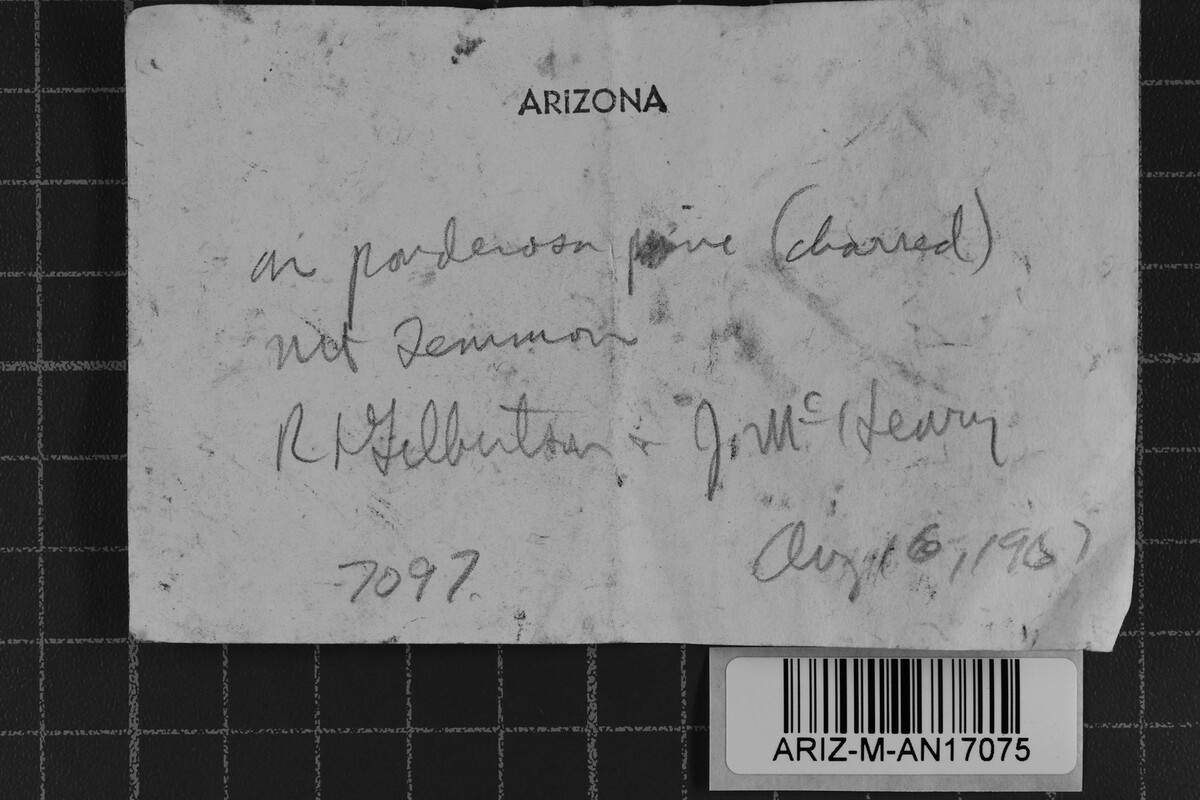 ARIZONA
on ponderosa pine (charred)
Mt Lemmon
R L Gilbertson + J. McHenry
7097.
Aug 16, 1967
ARIZ-M-AN17075